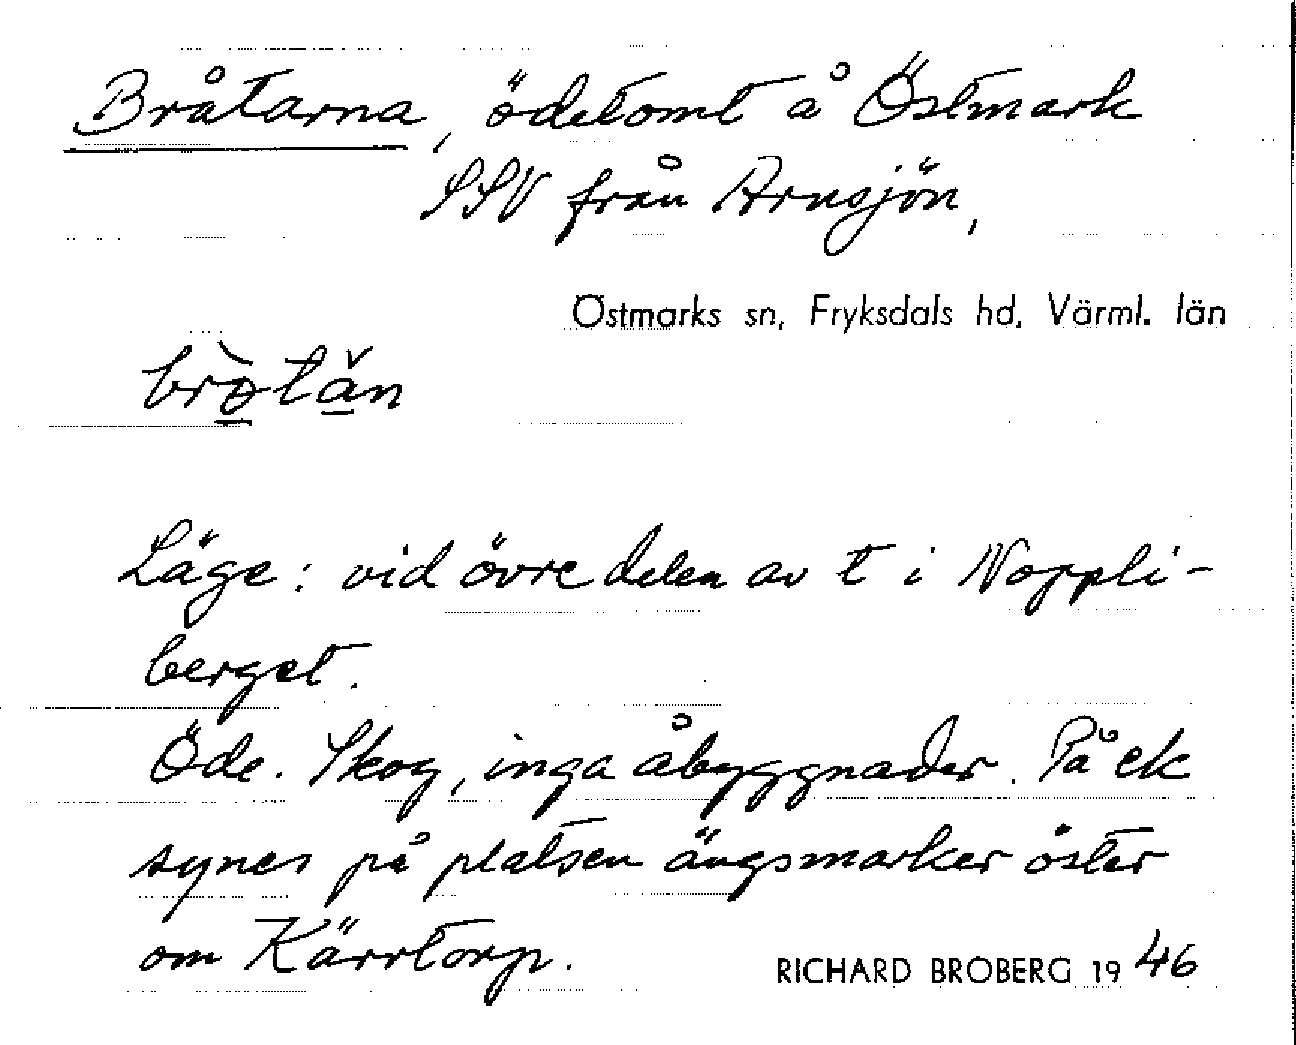 Bråtarna, ödetomt å Östmark
SSV från Arnsjön,
Östmarks sn, Fryksdals hd, Värml. län
Läge: vid övre delen av t i Noppli-
berget.
Öde. Skog, inga åbyggnader. På ek
synes på platsen ängsmarker öster
om Kärrtorp.
RICHARD BROBERG 1946